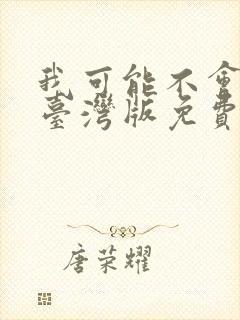 我可能不會
臺灣版免費
唐荣耀